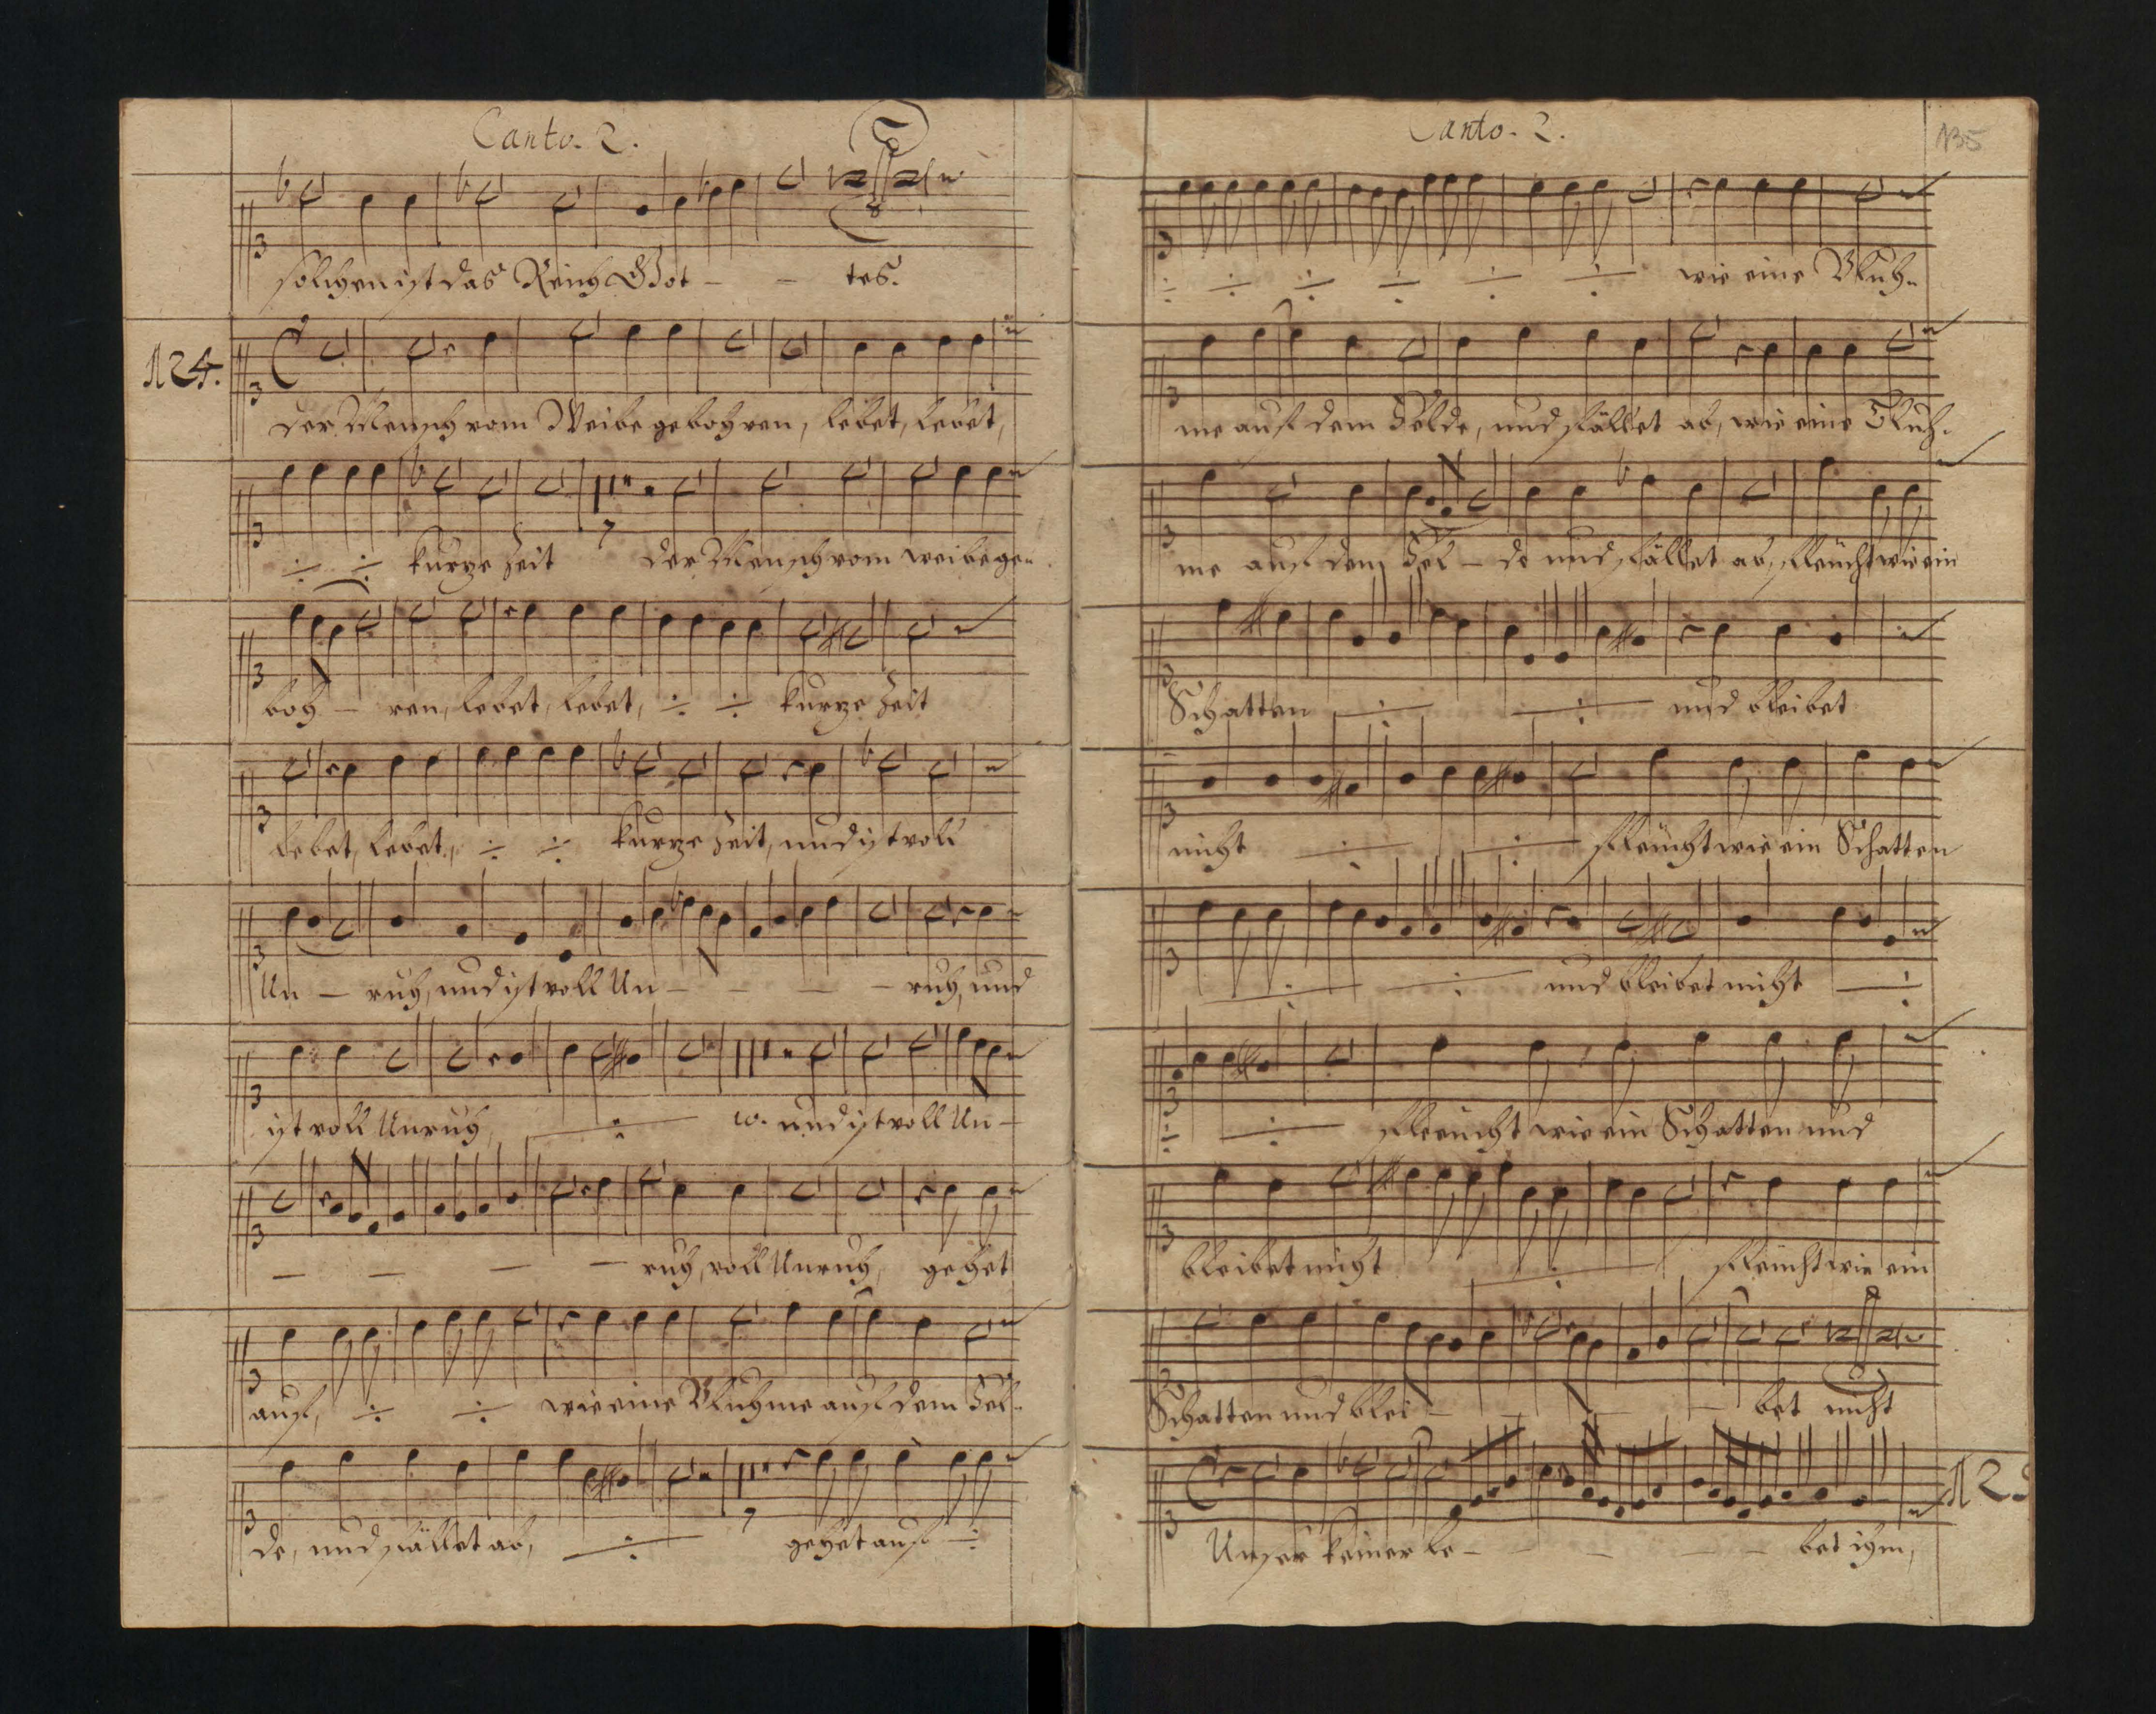 Canto. 2.
solchen ist das Reich Got - - tes.
124.
Der Mensch vom Weibe gebohren, lebet, lebet,
kurze Zeit 7 der Mensch vom weibe ge-
boh - ren, lebet, lebet, kurze Zeit
lebet, lebet, kurze Zeit, und ist voll
Un - ruh, und ist voll Un - - - - ruh, und
ist voll Unruh, und ist voll Un -
- - - - ruh, voll Unruh, gehet
auf, wie eine Bluhme auf dem Fel-
de, und fället ab, 7 gehet auf
Canto. 2.
135
wie eine Bluh-
me auf dem Felde, und fället ab, wie eine Bluh-
me auf dem Fel - de und fället ab, fleucht wie ein
Schatten und bleibet
nicht fleucht wie ein Schatten
und bleibet nicht
fleucht wie ein Schatten und
bleibet nicht fleucht wie ein
Schatten und blei - - - - bet nicht
Unser keiner le - - - - - bet ihm,